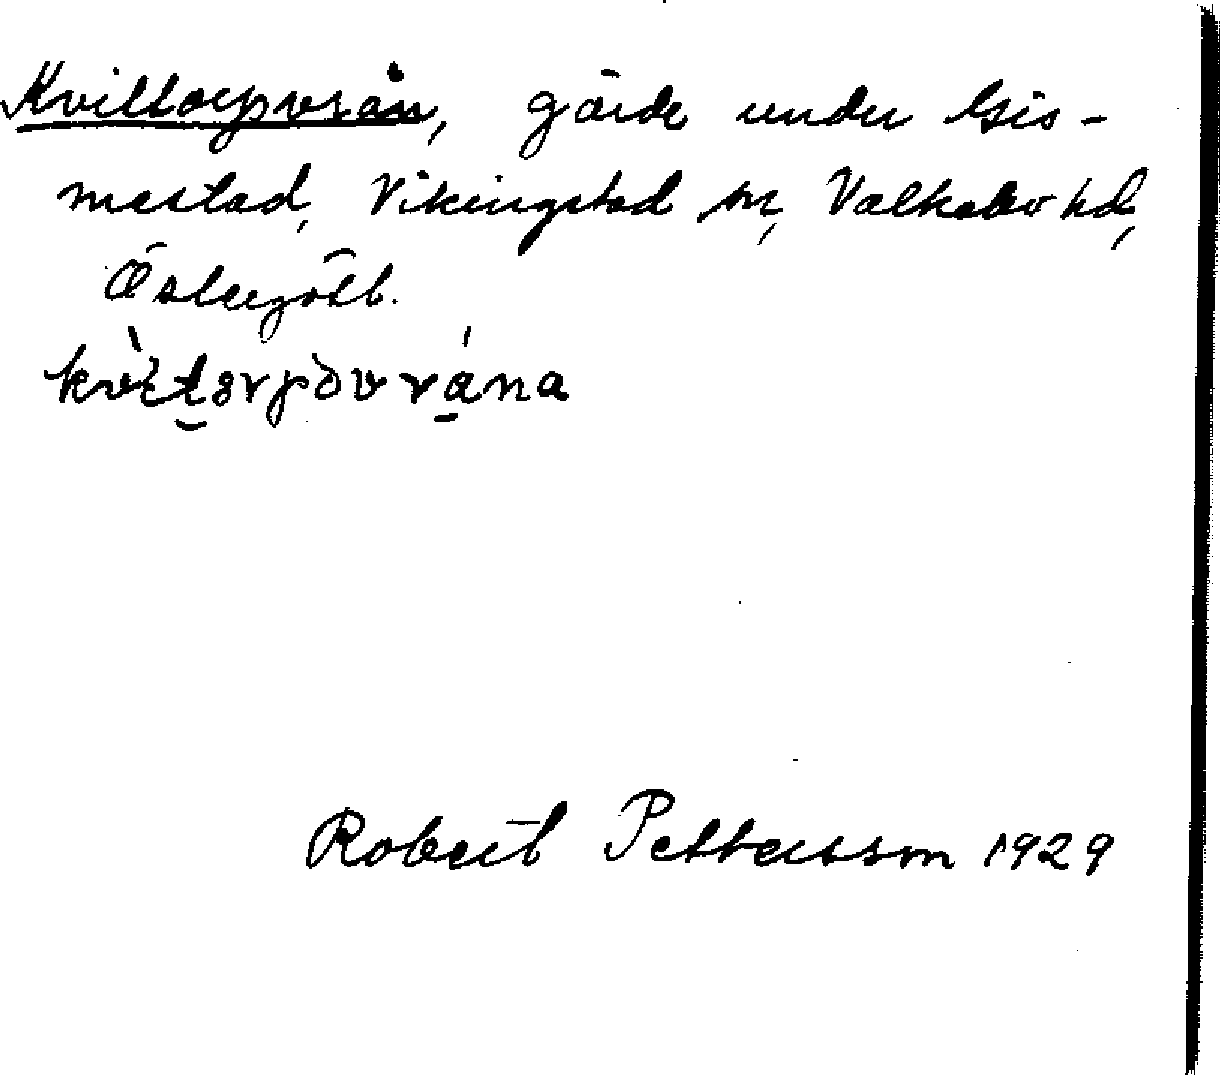 Kvittorpvrån, gärde under Gis-
mestad, Vikingstad sn, Valkebo hd,
Östergötl.
Robert Pettersson 1929